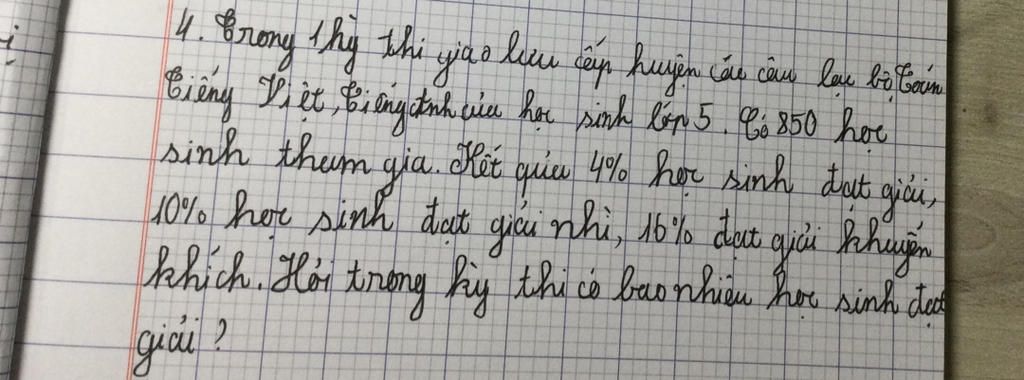 4. Trong 1 kỳ thi giao lưu cấp huyện các câu lạc bộ Toán
Tiếng Việt, Tiếng Anh của học sinh lớp 5. Có 850 học
sinh tham gia. Kết quả 4% học sinh đạt giải,
10% học sinh đạt giải nhì, 16% đạt giải khuyến
khích. Hỏi trong kỳ thi có bao nhiêu học sinh đạt
giải?